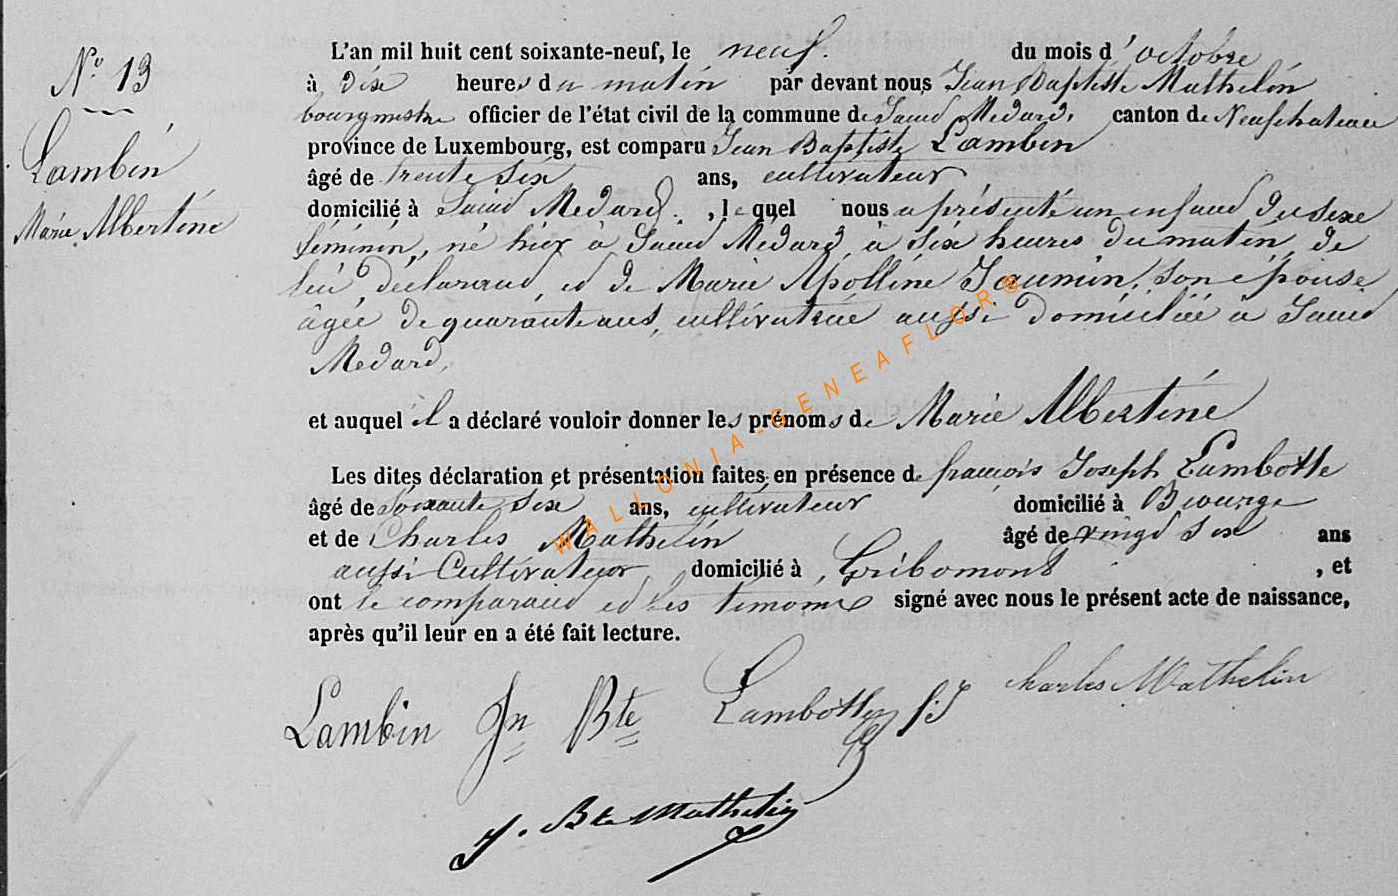 N.º 13
Lambin
Marie Albertine
L'an mil huit cent soixante-neuf, le neuf. du mois d'octobre
à dix heures du matin par devant nous Jean Baptiste Mathelin
bourgmestre officier de l'état civil de la commune de Saint Medard, canton de Neufchateau
province de Luxembourg, est comparu Jean Baptiste Lambin
âgé de trente six ans, cultivateur
domicilié à Saint Medard, lequel nous a présenté un enfant du sexe
féminin, né hier à Saint Medard à six heures du matin, de
lui déclarant, et de Marie Apolline Jaumin, son épouse
âgée de quarante ans, cultivatrice aussi domiciliée à Saint
Medard,
et auquel il a déclaré vouloir donner les prénoms de Marie Albertine
Les dites déclaration et présentation faites en présence de françois Joseph Lambotte
âgé de soixante six ans, cultivateur domicilié à Biourge
et de Charles Mathelin âgé de vingt six ans
aussi Cultivateur, domicilié à Gribomont, et
ont le comparant et les temoins signé avec nous le présent acte de naissance,
après qu'il leur en a été fait lecture.
Lambin Jn Bte Lambotte f J Charles Mathelin
J. Bte Mathelin
WALLONIA-GENEAFLOR®